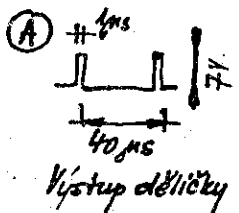 A
1µs
7V
40µs
Výstup děličky